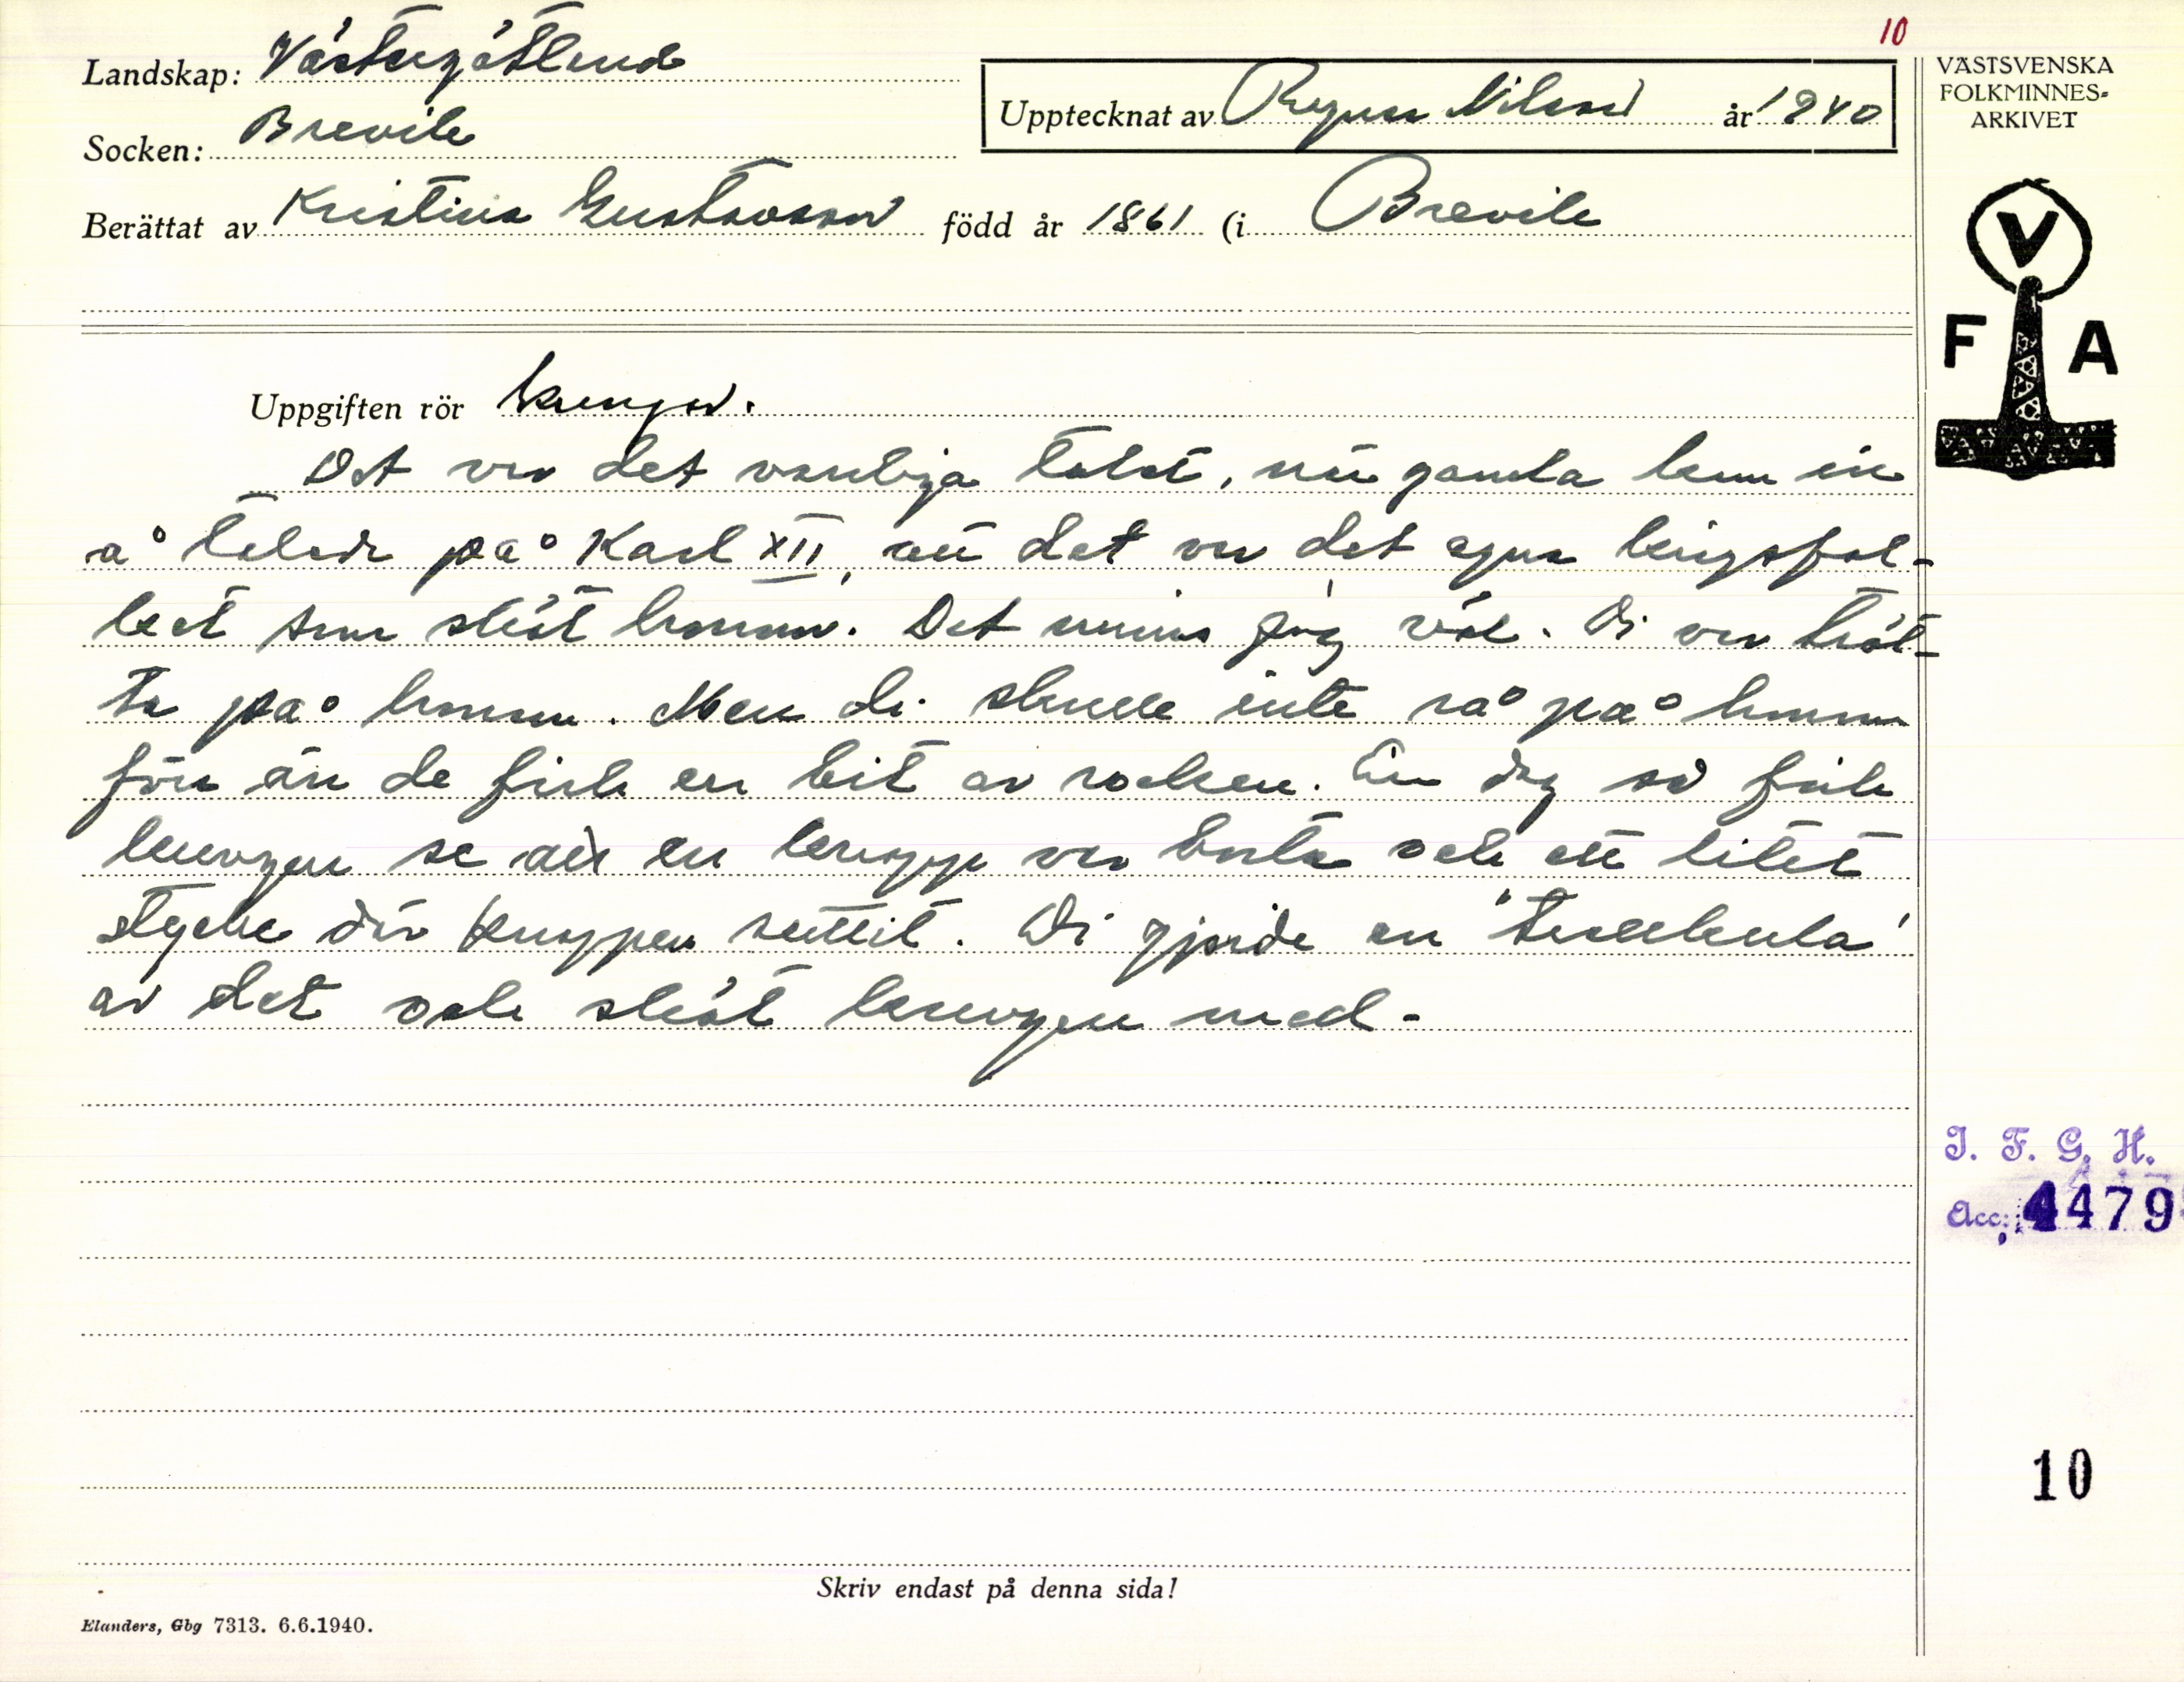 10
Landskap: Västergötland
Socken: Brevik
Upptecknat av Ragnar Nilsson år 1940
Berättat av Kristina Gustavsson född år 1861 (i Brevik
VÄSTSVENSKA
FOLKMINNES-
ARKIVET
V
F A
Uppgiften rör kungar.
Det var det vanliga talet, när gamla kom in
å talade på Karl XII, att det var det egna krigsfol-
ket som sköt honom. Det minns jag väl. Di var tröt-
ta på honom. Men di skulle inte rå på honom
förr än de fick en bit av rocken. En dag så fick
kungen se att en knapp var borta och ett litet
stycke där knappen suttit. Di gjorde en "trollkula"
av det och sköt kungen med.
I. F. G. H.
Acc: 4479
10
Skriv endast på denna sida!
Elanders, Gbg 7313. 6.6.1940.